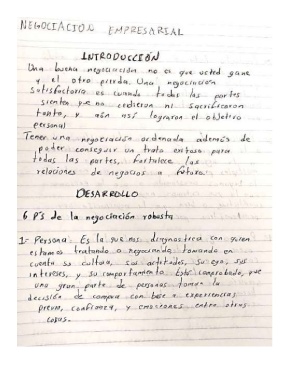 NEGOCIACION EMPRESARIAL
INTRODUCCIÓN
Una buena negociación no es que usted gane
y el otro pierda. Una negociación
satisfactoria es cuando todas las partes
sienten que no cedieron ni sacrificaron
tanto, y aún así lograron el objetivo
personal
Tener una negociación ordenada además de
poder conseguir un trato exitoso para
todas las partes, fortalece las
relaciones de negocios a futuro.
DESARROLLO
6 P's de la negociación robusta
1- Persona: Es la que nos diagnostica con quien
estamos tratando o negociando tomando en
cuenta su cultura, sus actitudes, su ego, sus
intereses, y su comportamiento. Está comprobado, que
una gran parte de personas toman la
decisión de compra con base a experiencias
previas, confianza, y emociones entre otras
cosas.